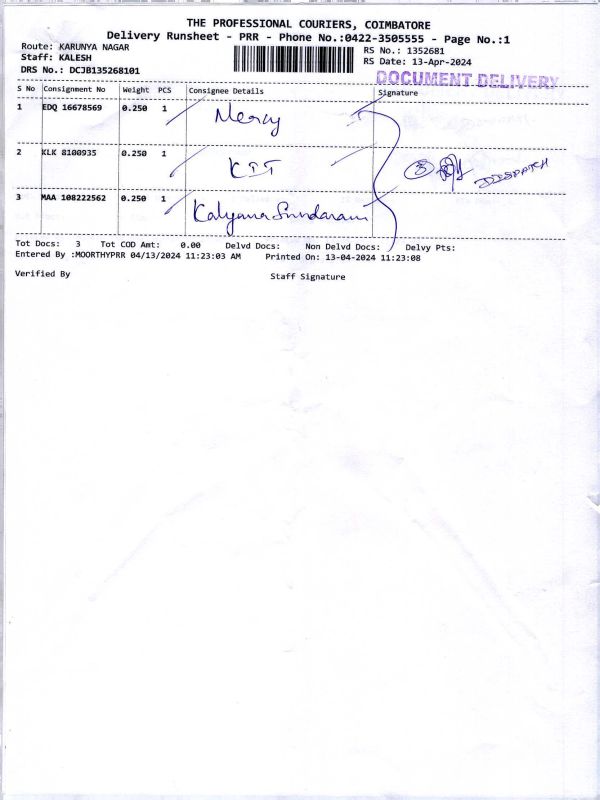 THE PROFESSIONAL COURIERS, COIMBATORE
Delivery Runsheet - PRR - Phone No.:0422-3505555 - Page No.:1
Route: KARUNYA NAGAR
RS No.: 1352681
Staff: KALESH
RS Date: 13-Apr-2024
DRS No.: DCJB135268101
DOCUMENT DELIVERY
S No Consignment No Weight PCS Consignee Details Signature
1 EDQ 16678569 0.250 1 Mercy
2 KLK 8100935 0.250 1 KIT
3 DISPATCH
3 MAA 108222562 0.250 1 Kalyana Sundaram
Tot Docs: 3 Tot COD Amt: 0.00 Delvd Docs: Non Delvd Docs: Delvy Pts:
Entered By :MOORTHYPRR 04/13/2024 11:23:03 AM Printed On: 13-04-2024 11:23:08
Verified By Staff Signature